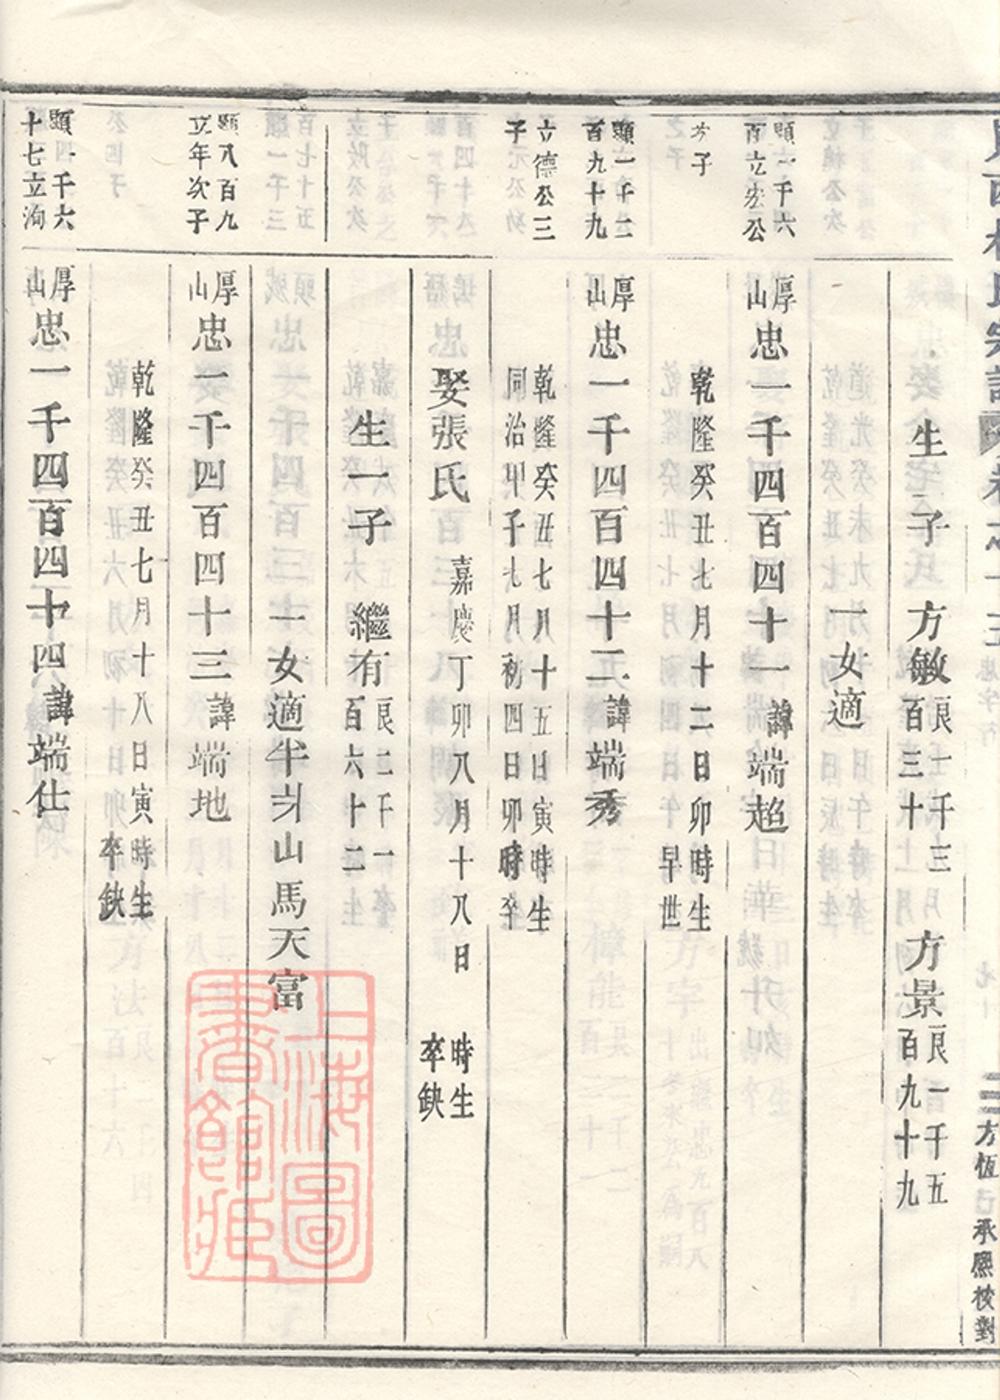 生二子 方敏 良一千三百三十 方景 良一千五百九十九
一女適
顯一千六百立宏公
厚山 忠一千四百四十一 諱端超
次子
乾隆癸丑七月十二日卯時生 早世
顯一千二百九十九
厚山 忠一千四百四十二 諱端秀
立德公三子
乾隆癸丑七月十五日寅時生
同治甲子七月初四日卯時卒
娶張氏 嘉慶丁卯八月十八日 時生 卒缺
生一子 繼有 良二千一百六十二
一女適半爿山馬天富
顯八百九立年次子
厚山 忠一千四百四十三 諱端地
乾隆癸丑七月十八日寅時生 卒缺
顯一千六十七立洵
厚山 忠一千四百四十四 諱端仕
方恆 承熙校對
上海圖書館藏